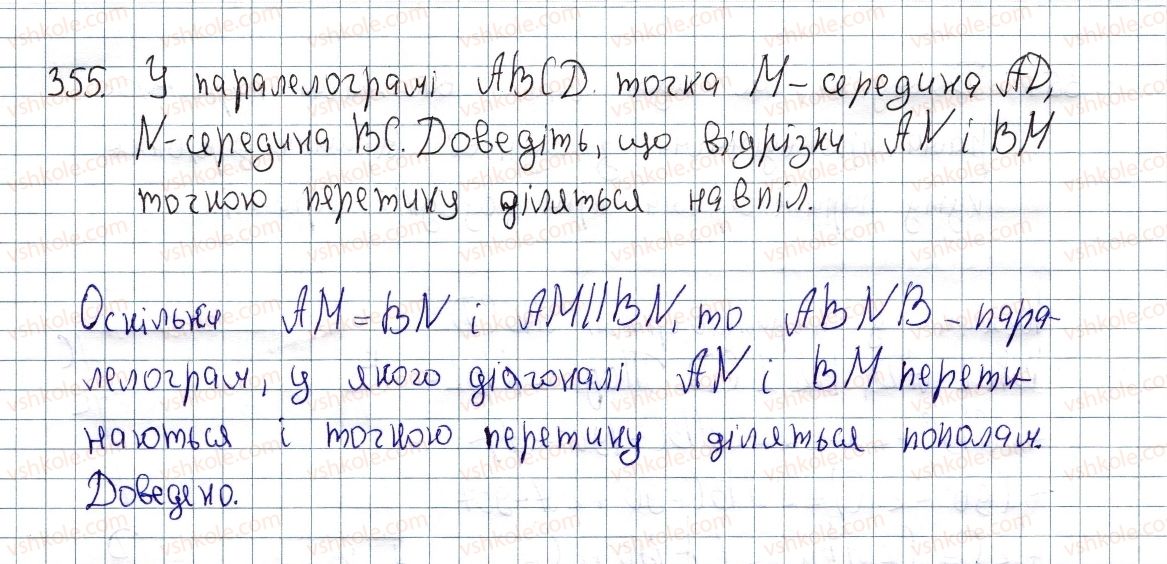 355. У паралелограмі ABCD точка M - середина AD,
N - середина BC. Доведіть, що відрізки AN і BM
точкою перетину діляться навпіл.
Оскільки AM = BN і AM || BN, то ABNB - пара-
лелограм, у якого діагоналі AN і BM перети-
наються і точкою перетину діляться пополам.
Доведено.